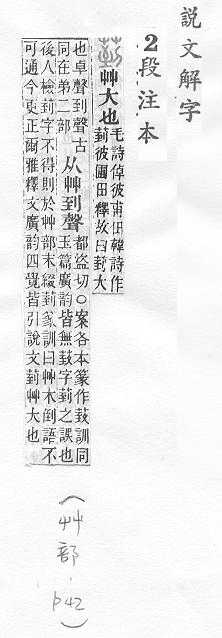 說文解字
2段注本
菿 艸大也 毛詩倬彼甫田韓詩作
菿彼圃田釋故曰菿大
也卓聲到聲古
同在第二部 从艸到聲 都盜切○案各本篆作 訓同
玉篇廣韵皆無 字菿之誤也
後人檢菿字不得則於艸部末綴菿篆訓曰艸木倒語不
可通今更正爾雅釋文廣韵四覺皆引說文菿艸大也
(艸部.p42)